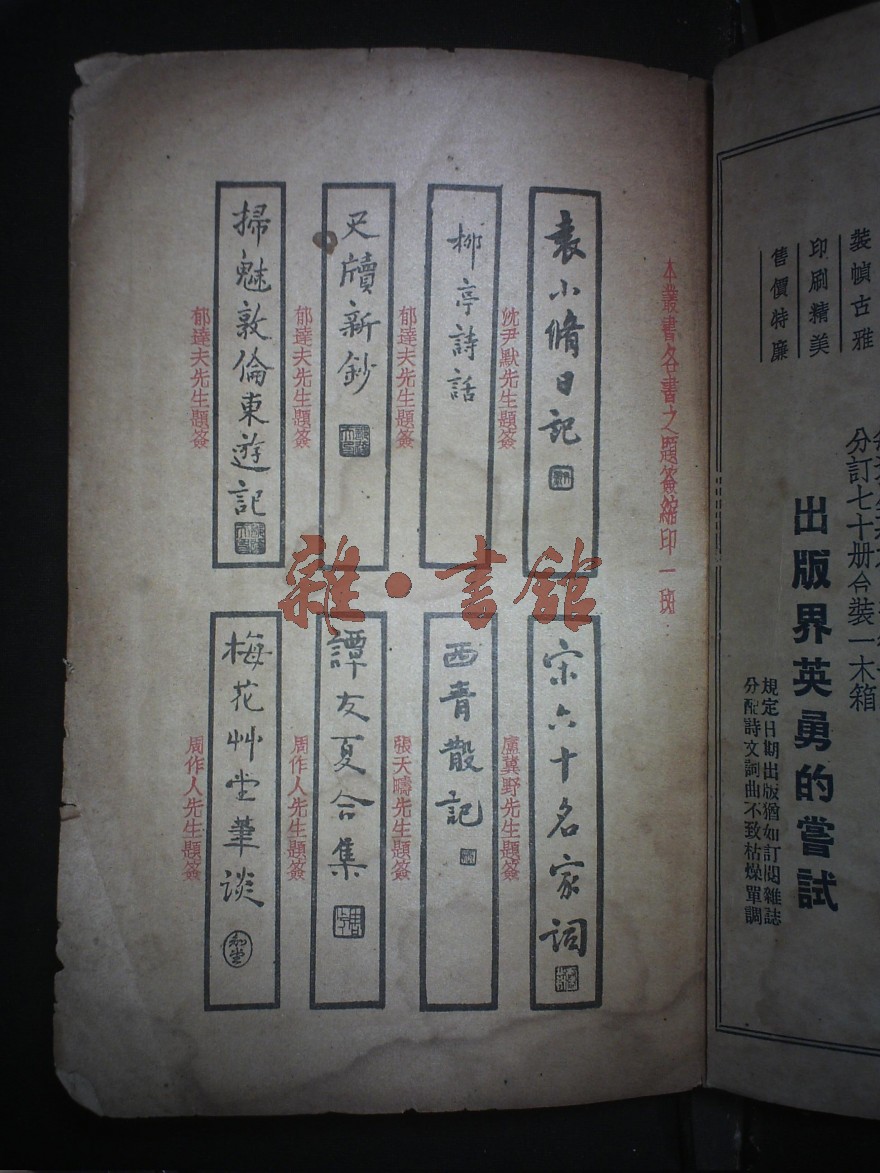 裝幀古雅
印刷精美
售價特廉
分訂七十册合裝一木箱
出版界英勇的嘗試
規定日期出版猶如訂閱雜誌
分配詩文詞曲不致枯燥單調
本叢書各書之題簽縮印一斑
袁小脩日記
沈尹默先生題簽
柳亭詩話
郁達夫先生題簽
尺牘新鈔
郁達夫先生題簽
掃魅敦倫東遊記
郁達夫先生題簽
宋六十名家詞
盧冀野先生題簽
西青散記
張天疇先生題簽
譚友夏合集
周作人先生題簽
梅花艸堂筆談
知堂
周作人先生題簽
雜·書舘